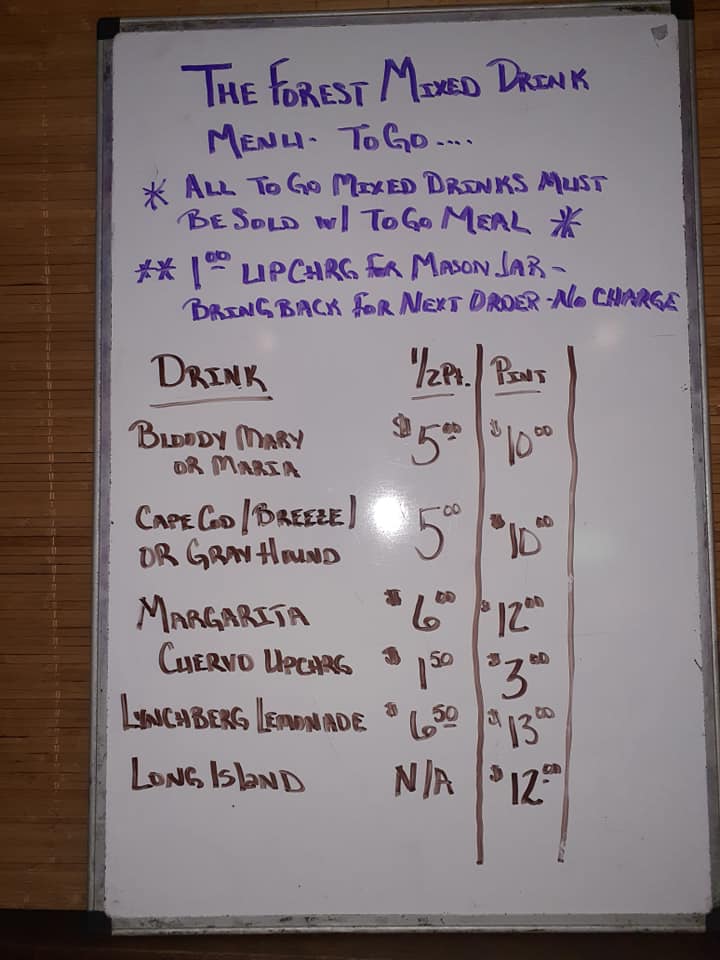 THE FOREST MIXED DRINK
MENU- TO GO....
* ALL TO GO MIXED DRINKS MUST
BE SOLD W/ TO GO MEAL *
** 1⁰⁰ UPCHRG FOR MASON JAR -
BRING BACK FOR NEXT ORDER - NO CHARGE
DRINK 1/2 PT. PINT
BLOODY MARY $5⁰⁰ $10⁰⁰
OR MARIA
CAPE COD/BREEZE/ 5⁰⁰ $10⁰⁰
OR GRAY HOUND
MARGARITA $6⁰⁰ $12⁰⁰
CUERVO UPCHRG $1⁵⁰ $3⁰⁰
LYNCHBERG LEMONADE $6⁵⁰ $13⁰⁰
LONG ISLAND N/A $12⁰⁰